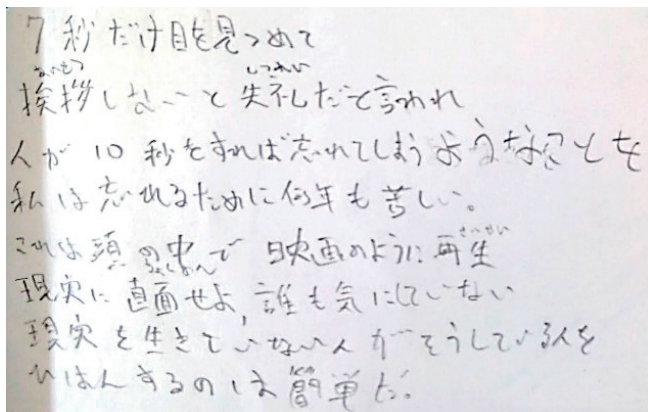 7秒だけ目を見つめて
挨拶しないと失礼だと言われ
人が10秒をすれば忘れてしまうようなことを
私は忘れるために何年も苦しい。
これは頭の中で映画のように再生
現実に直面せよ,誰も気にしていない
現実を生きていない人がそうしている人を
ひはんするのは簡単だ。